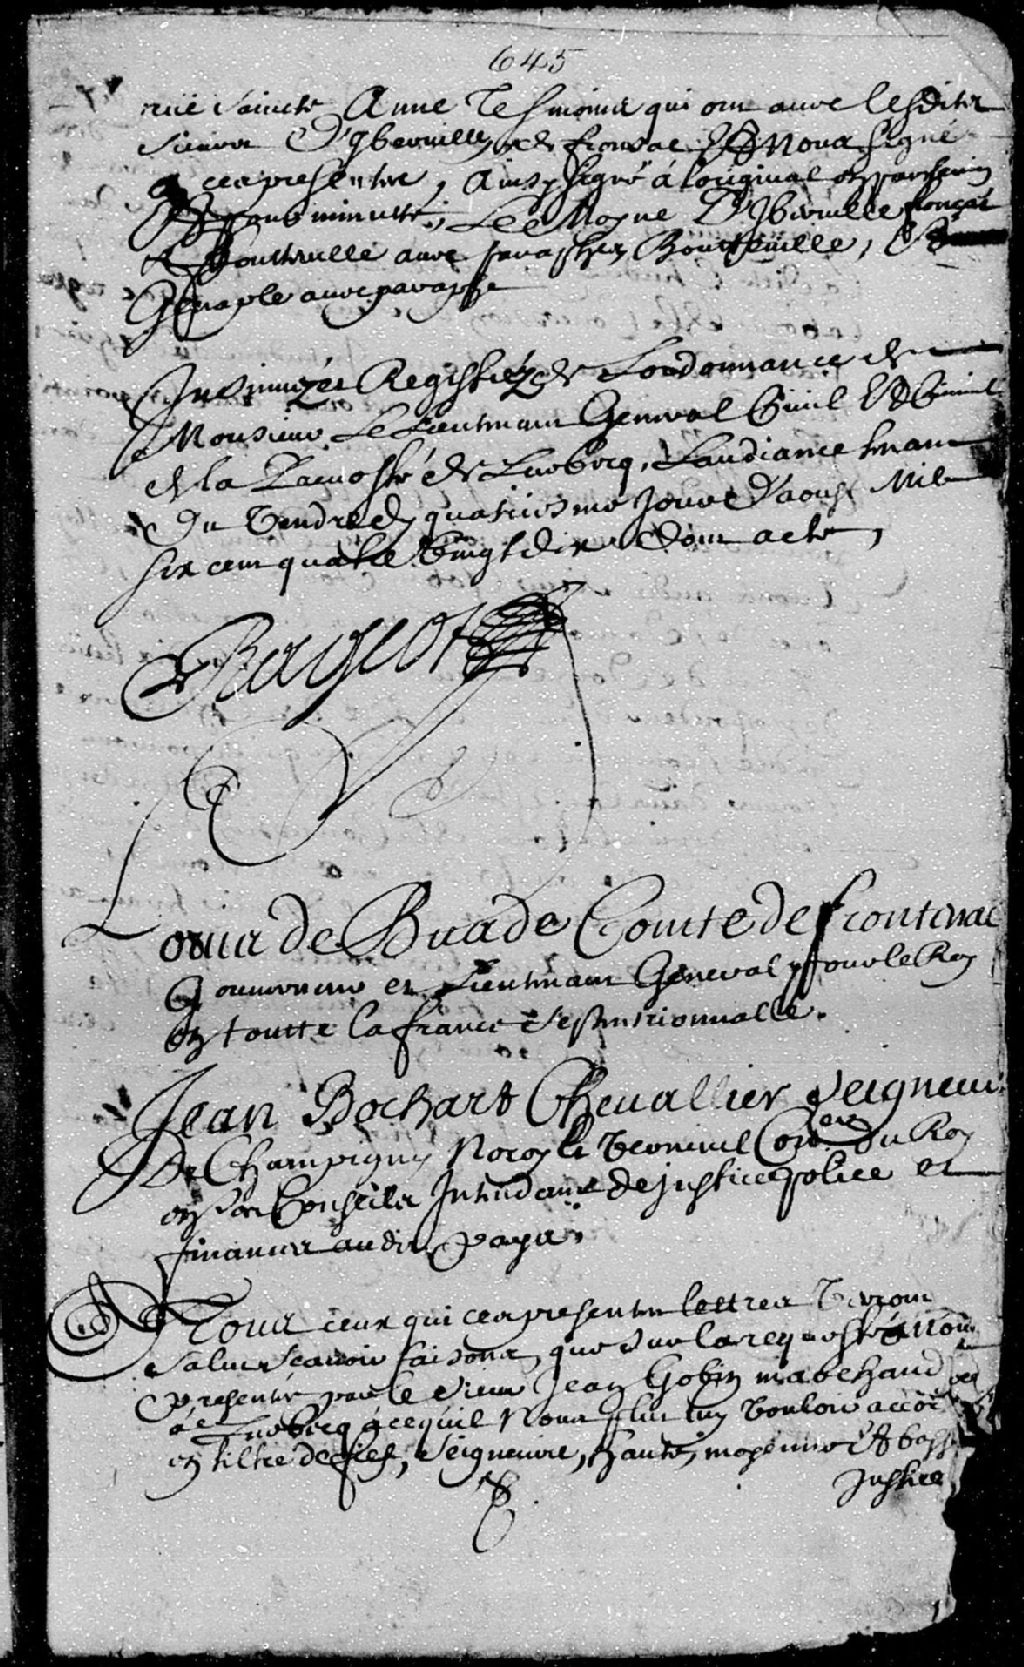 645
rüe Saincte Anne Tesmoins qui ont avec lesdits
Sieurs D'Iberville, et de fronsac Et Nous Signé
ces presentes, Ainsy Signé à loriginal en parchemin
pour minutte; Le Moyne D'Iberville fronsac
avec paraphes Boutteville, Et
Genaple avec paraphe
Insinuées Registrées de Lordonnance de
Monsieur Le Lieutenant General Civil Et Criminel
de la Prevosté de Quebecq, Laudiance tenant
Du Vendredy quatriesme Jour D'aoust Mil
six cent quatre Vingt dix Dont acte,
Rageot
Louis de Buade Comte de frontenac
Gouverneur et Lieutenant General pour le Roy
en toutte la france Septentrionnalle.
Jean Bochart Chevallier Seigneur
De Champigny Noroy et Verneuil Conser du Roy
en ses Conseils Intendant de justice police et
finances audit Pays.
A Tous ceux qui ces presentes lettres Verront
Salut Scavoir faisons, que Sur la requeste à nous
presentée par le Sieur Jean Gobin marchand
à Quebecq à ce qu'il Nous plut luy Vouloir accor
en tiltre de fief, Seigneurie, haute, moyenne Et basse
Justice